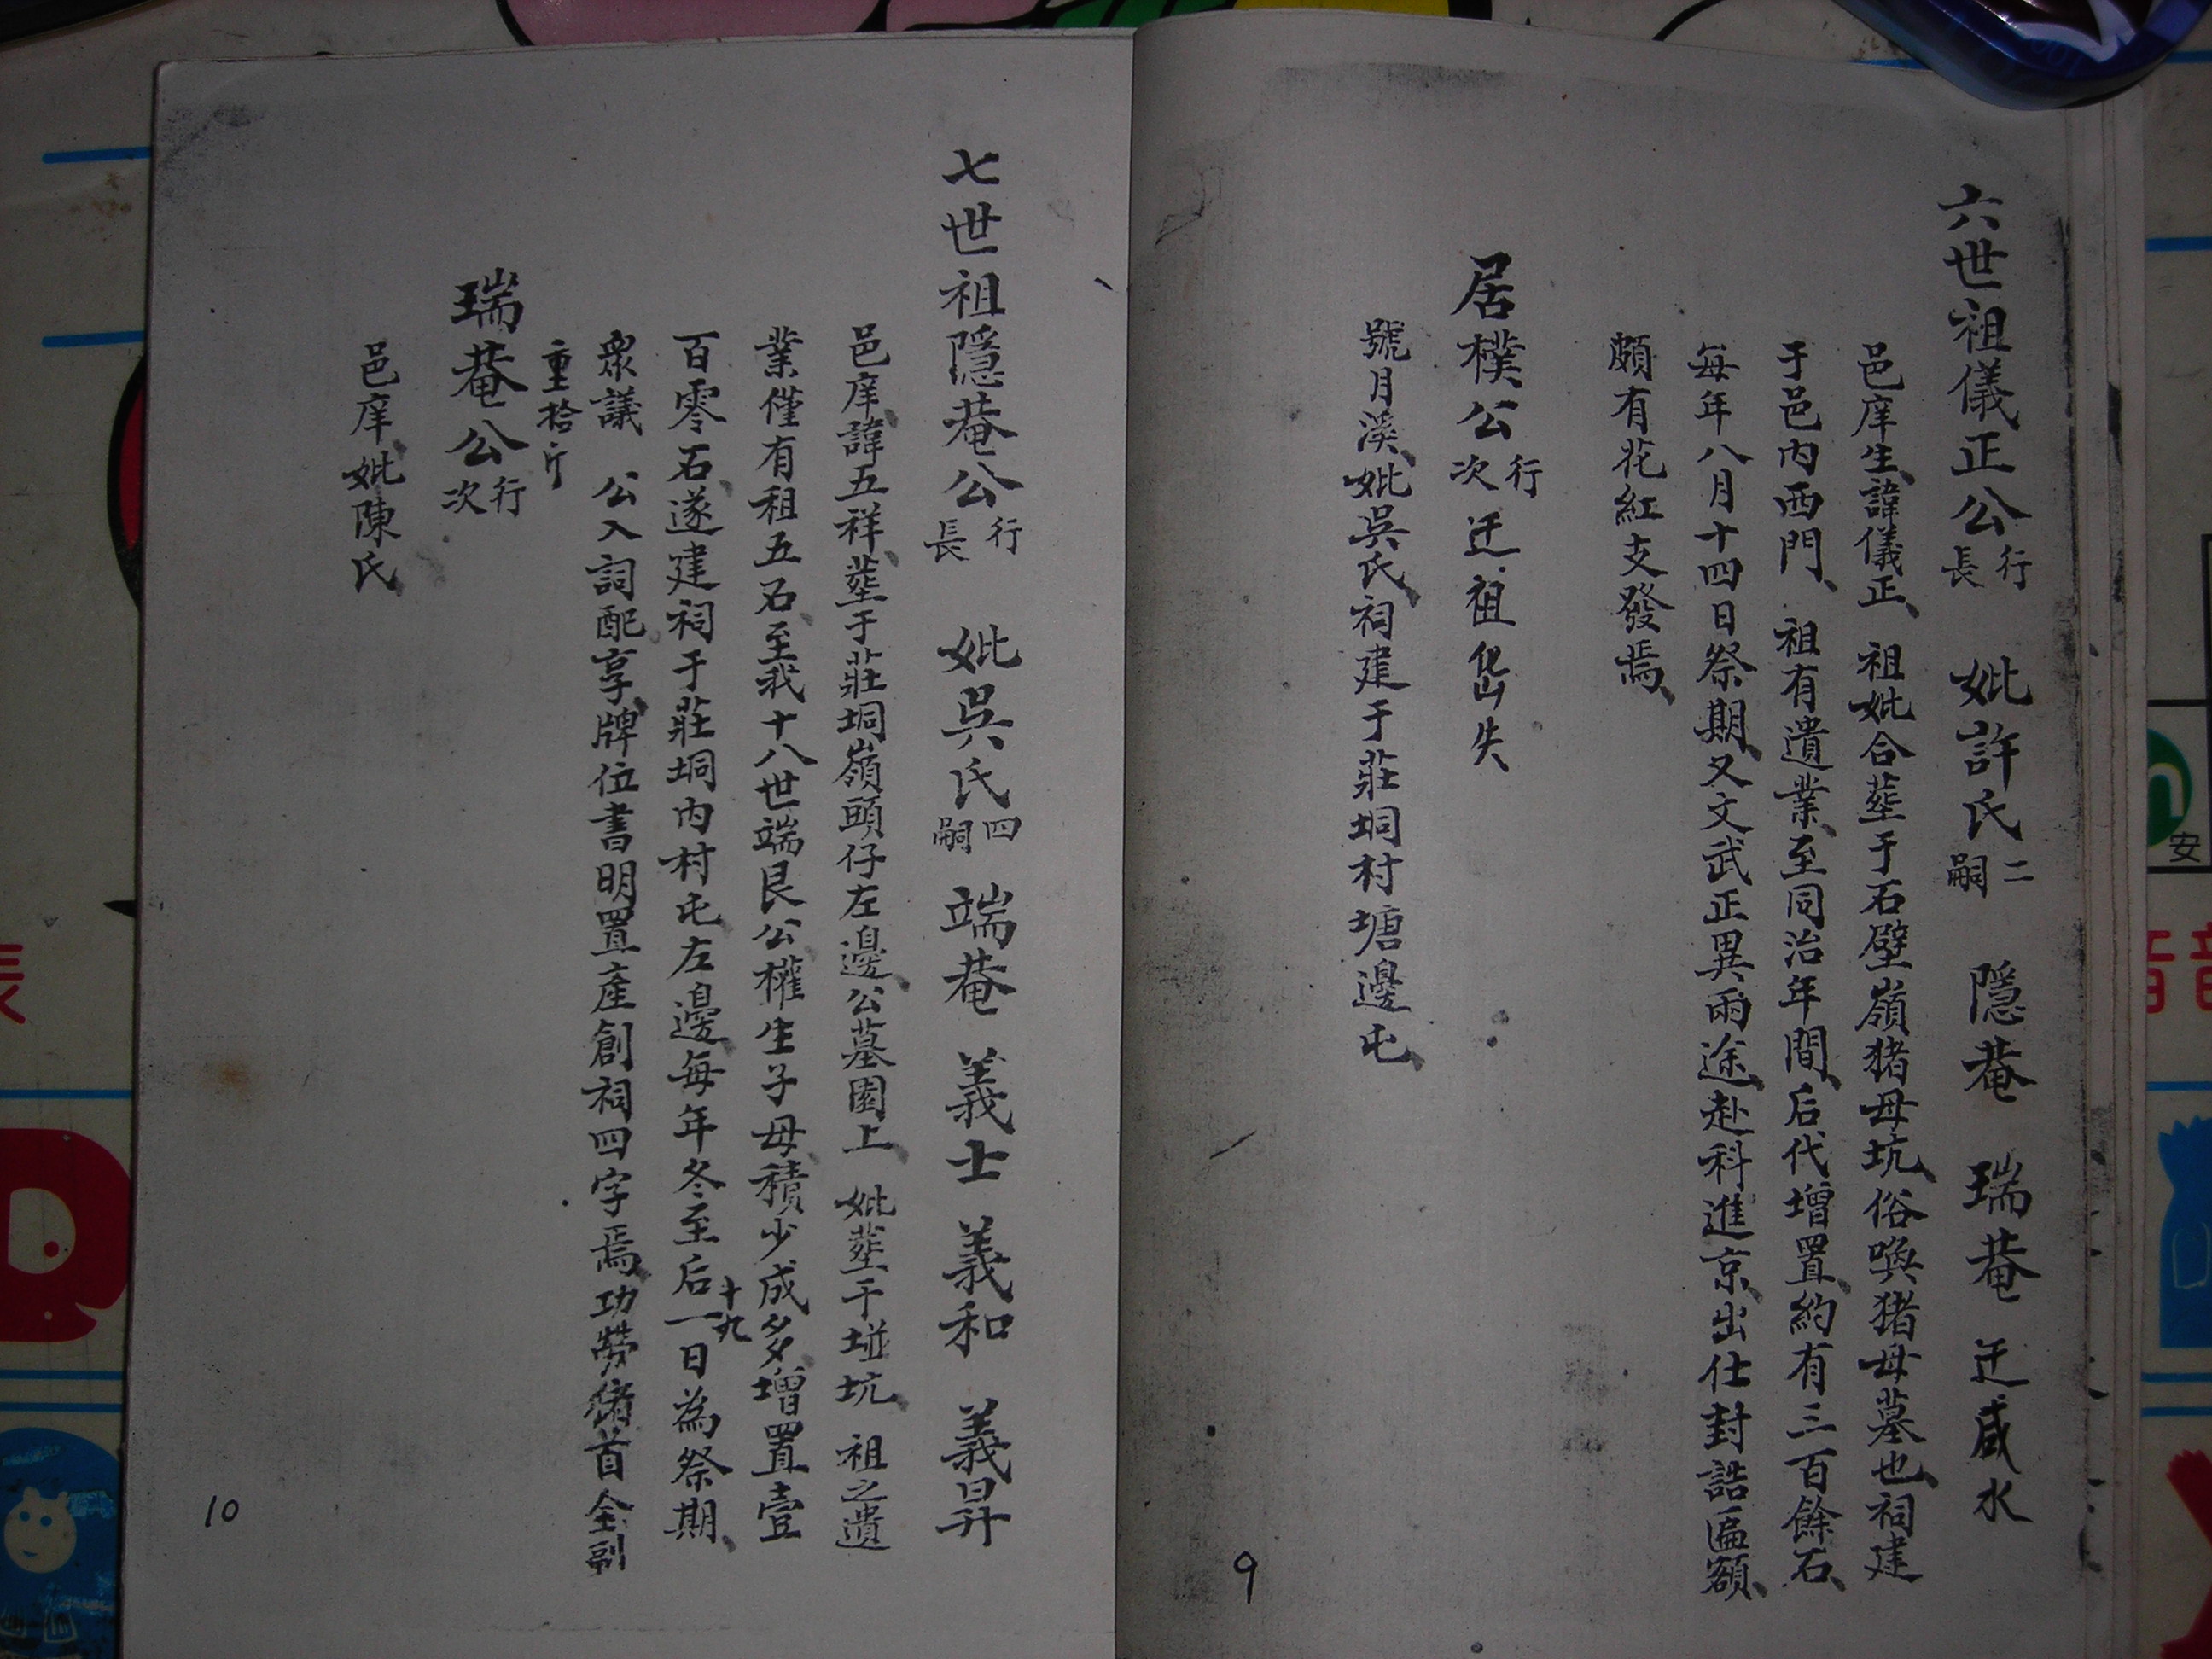 六世祖儀正公行長 妣許氏二嗣 隱菴 瑞菴 迁咸水
邑庠生、諱儀正、祖妣合塟于石壁嶺猪母坑、俗喚猪母墓也、祠建
于邑内西門、祖有遺業、至同治年間、后代增置、約有三百餘石、
每年八月十四日祭期、又文武正異兩途、赴科進京、出仕封誥匾額、
頗有花紅支發焉、
居樸公行次 迁祖岱失
號月溪、妣吳氏、祠建于莊垌村塘邊屯、
9
七世祖隱菴公行長 妣吳氏四嗣 端菴 義士 義和 義昇
邑庠、諱五祥、塟于莊垌嶺頭仔左邊、公墓園上、妣塟于埇坑、祖之遺
業僅有租五石、至我十八世端艮公權生子母、積少成多、增置壹
百零石、遂建祠于莊垌内村屯左邊、每年冬至后一日為祭期、
十九
衆議 公入詞配享、牌位書明置產創祠四字焉、功勞偖首全副
重拾斤
瑞菴公行次
邑庠、妣陳氏、
10
安